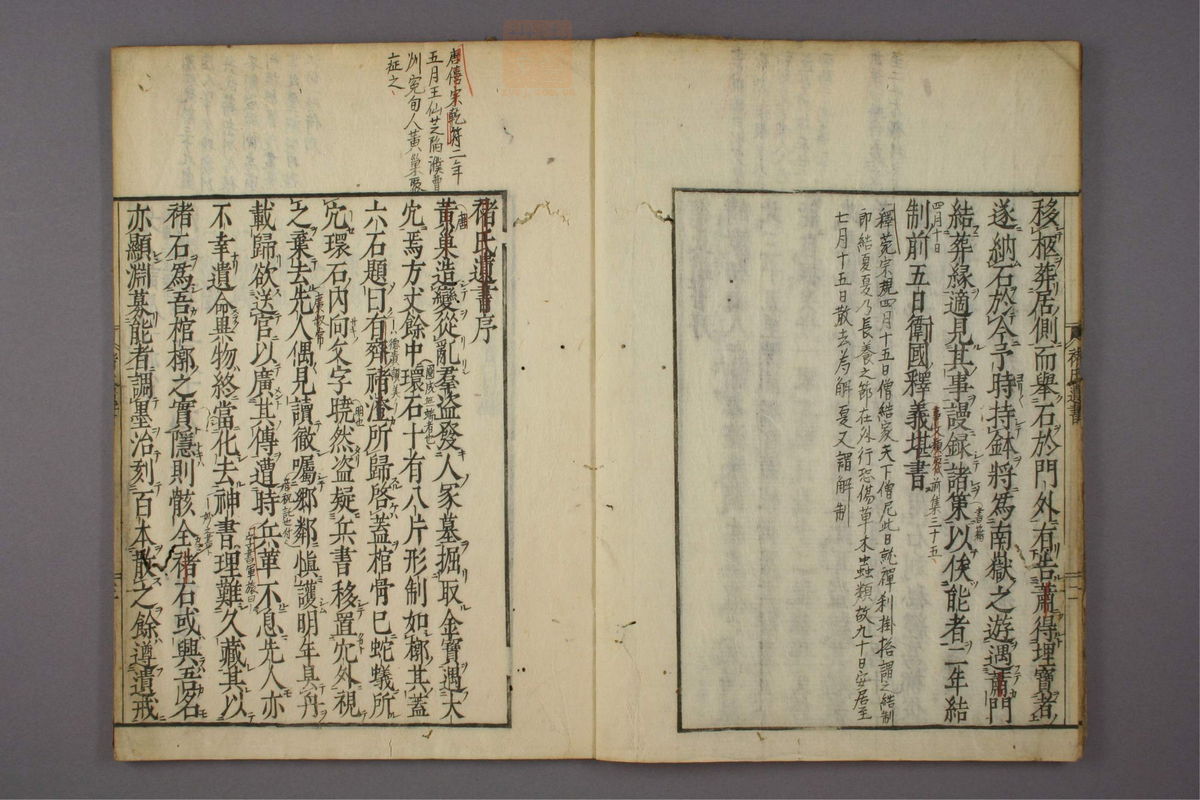 移柩葬居側而舉石於門外有告蕭得埋寶者
遂納石於令予時持鉢將為南嶽之遊遇蕭門
結葬縁適見其事謾録諸策以俟能者二年結
制前五日衛國釋義堪書
四月十日
釋苑宗規四月十五日僧結家天下僧尼此日就禪刹掛搭謂之結制
即結夏夏乃長養之節在外行恐傷草木蟲類故九十日安居至
七月十五日散去為解夏又謂解制
唐僖宗乾符二年
五月王仙芝陷濮曹
州寃句人黄巢聚
應之
褚氏遺書序
黄巢造變從亂羣盗發人冢墓掘取金寶遇大
穴焉方丈餘中環石十有八片形制如槨其蓋
六石題曰有齊褚澄所歸啓蓋棺骨已蛇蟻所
穴環石内向文字曉然盗疑兵書移置穴外視
之棄去先人偶見讀徹囑鄉鄰愼護明年具舟
載歸欲送官以廣其傳遭時兵革不息先人亦
不幸遺命異物終當化去神書理難久藏其以
褚石為吾棺槨之實隱則骸全褚石或興吾名
亦顯淵募能者調墨治刻百本散之餘遵遺戒